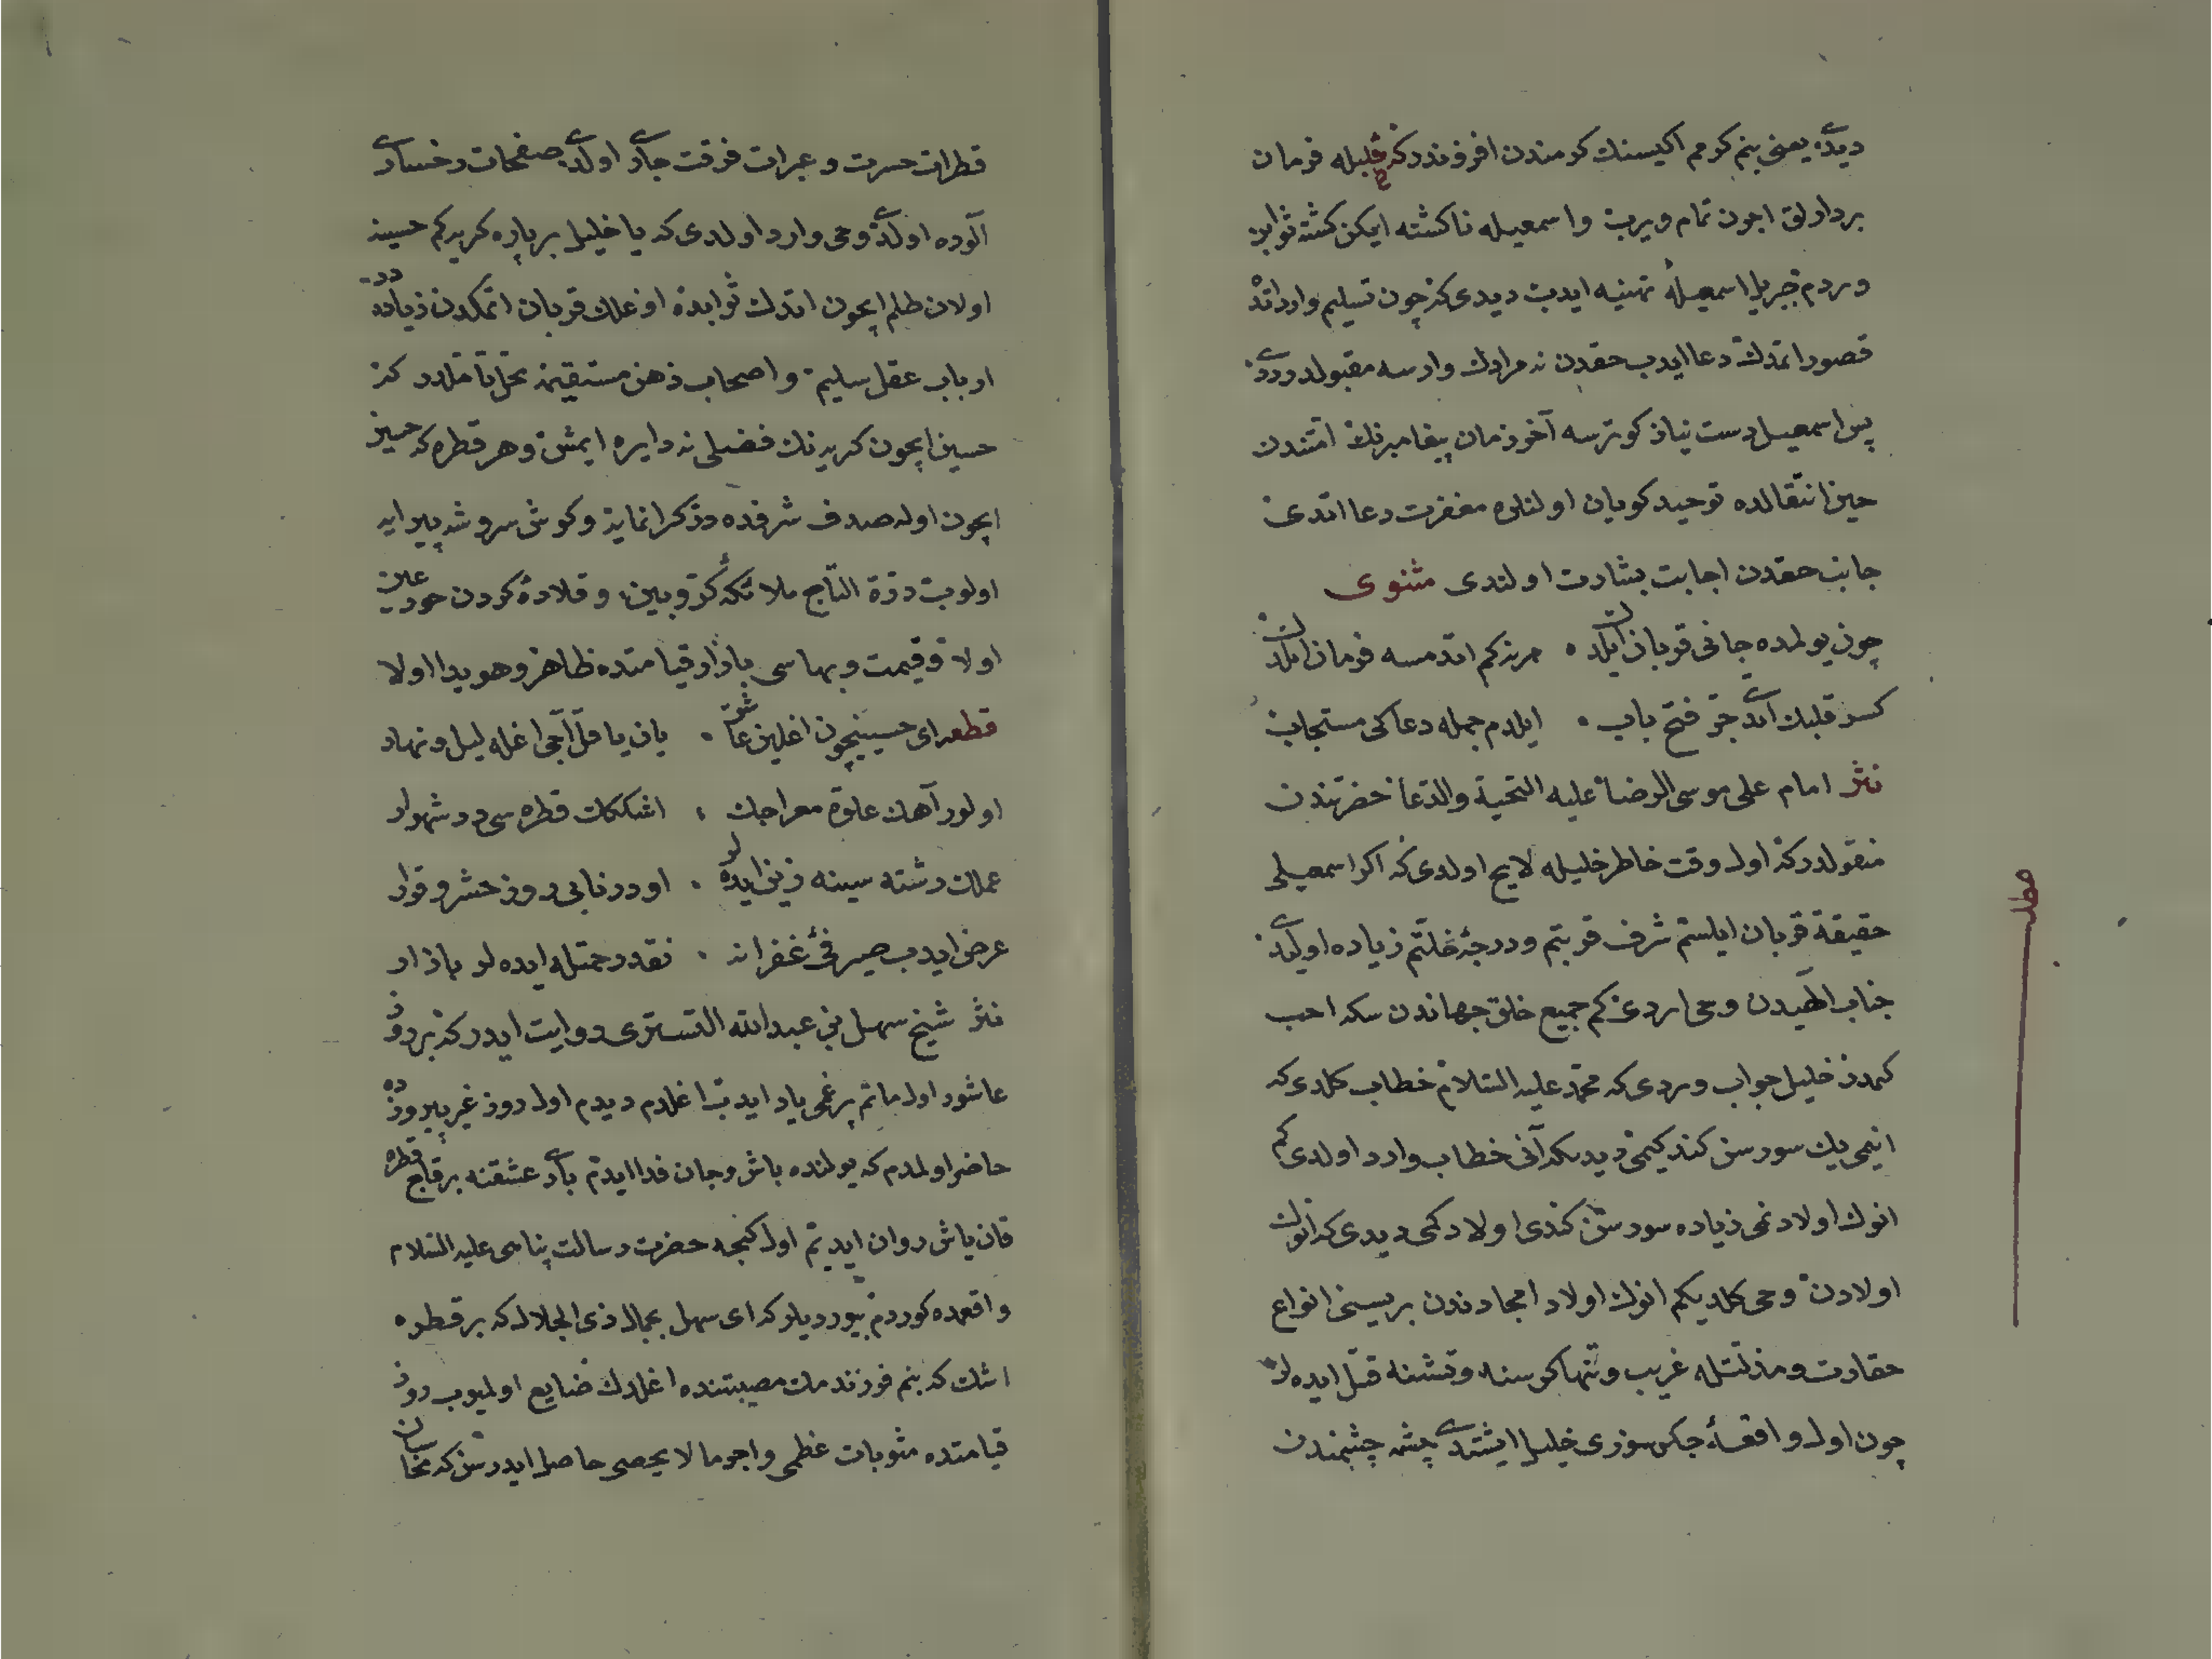 دیدی یعنی بنم کرمم اکیسنك کرمندن افزوندر که خلیله فرمان
بردارلق اچون تمام ویرب و اسمعیله ناکشته ایکن کشته ثوابن
وردم جبریل اسمعیله تهنیه ایدب دیدی که چون تسلیم وارداتده
قصور اتمدك دعا ایدب حقدن نه مرادك وارسه مقبولدر دیدی
پس اسمعیل دست نیاز کوترسه آخر زمان پیغامبرنك امتندن
حین انتقالده توحید کویان اولنلره مغفرت دعا اتدی
جانب حقدن اجابت بشارت اولندی مثنوی
چون یولمده جانی قربان ایلدك هر نه کم اتدمسه فرمان ایلدك
کسر قلبك اتدی چو فتح باب ایلدم جمله دعاکی مستجاب
نثر امام علی موسی الرضا علیه التحیة والدعا حضرتندن
منقولدر که اول وقت خاطر خلیله لایح اولدی که اکر اسمعیلی
حقیقة قربان ایلستم شرف قربتم و درجۀ خلتم زیاده اولیدی
جناب الهیدن وحی اردی کم جمیع خلق جهاندن سکه احب
کمدر خلیل جواب وردی که محمد علیه السلام خطاب کلدی که
انیمی یك سورسن کندیکیمی دیدی آنی خطاب وارد اولدی کم
انوك اولادنمی زیاده سورسن کندی اولادکمی دیدی که انوك
اولادن وحی کلدیکم انوك اولاد امجادندن بریسنی انواع
حقارت و مذلتله غریب و تنها کرسنه و تشنه قتل ایدهلر
چون اول واقعۀ جکرسوزی خلیل ایشتدی چشمه چشمندن
قطرات حسرت و عبرات فرقت جاری اولدی صفحات رخساری
آلوده اولدی وحی وارد اولدی که یا خلیل بر پاره کریه کم حسینه
اولان ظلم ایچون اتدك ثوابده اوغلك قربان اتمکدن زیاده در
ارباب عقل سلیم و اصحاب ذهن مستقیمه محل تأملدر که
حسین ایچون کریه نك فضلی نه دایره ایمش و هر قطره که حسین
ایچون اوله صدف شرفده در کرانمایه و کوش سروشه پیرایه
اولوب درة التاج ملائکۀ کروبین و قلادۀ کردن حور عین
اولا و قیمت و بهاسی بازار قیامتده ظاهر و هویدا اولا
قطعه ای حسینیچون اغلین عاشق یان یاقل آجی اغله لیل و نهار
اولور آهك علوّ معراجك اشککك قطره سی در شهوار
عملك رشته سینه زین ایدهلر اودر نابی روز حشر وقرار
عرض ایدب صیرفئ غفرانه نقد رحمتله ایدهلر بازار
نثر شیخ سهل بن عبدالله التستری روایت ایدر که بر روز
عاشور اول ماتم پر غمی یاد ایدب اغلدم دیدم اول روز غم پیروزده
حاضر اولمدم که یولنده باش و جان فدا ایدم باری عشقنه بر قاچ قطره
قان یاش روان ایدیم اول کیجه حضرت رسالت پناهی علیه السلام
واقعمده کوردم بیوردیلر که ای سهل بجمال ذی الجلال که بر قطره
اشك که بنم فرزندمك مصیبتنده اغلدك ضایع اولمیوب روز
قیامتده مثوبات عظمی و اجر ما لا یحصی حاصل ایدرسن که محاسبان